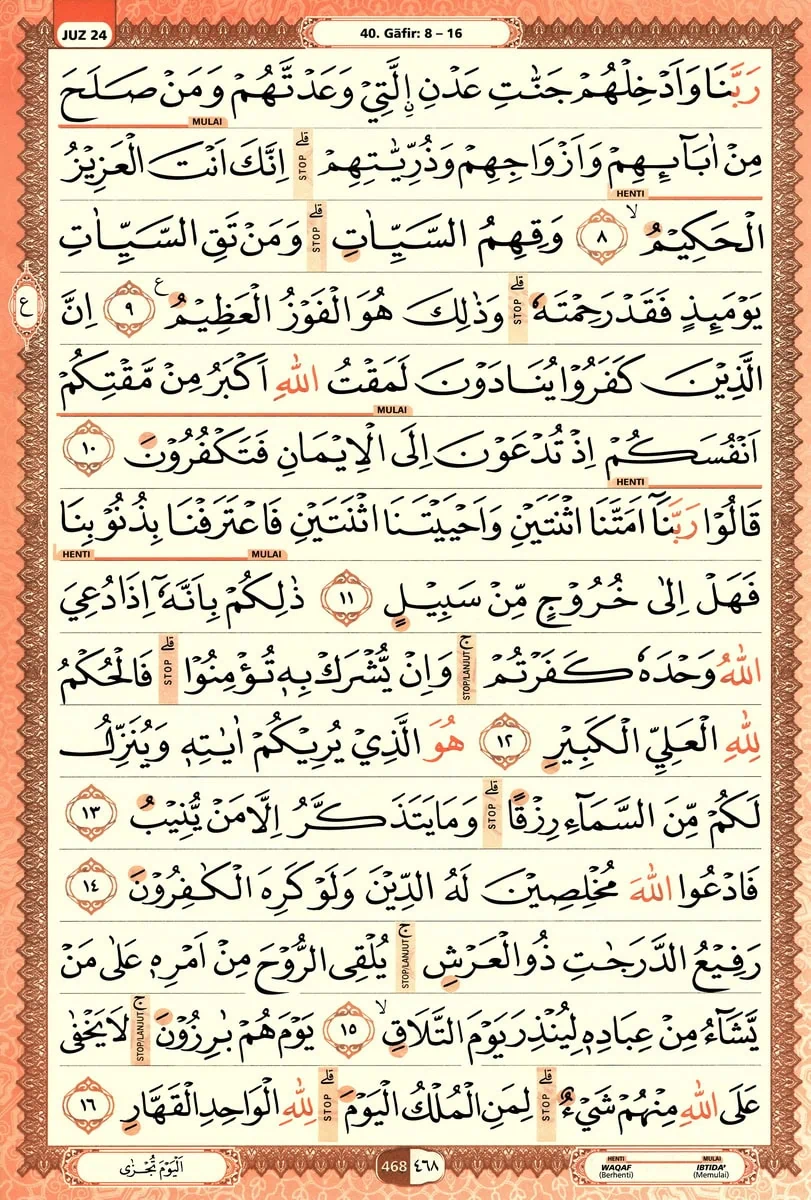 JUZ 24
40. Gāfir: 8 – 16
رَبَّنَا وَاَدْخِلْهُمْ جَنّٰتِ عَدْنِ ࣙالَّتِيْ وَعَدْتَّهُمْ وَمَنْ صَلَحَ
MULAI
مِنْ اٰبَاۤىِٕهِمْ وَاَزْوَاجِهِمْ وَذُرِّيّٰتِهِمْ ۗ اِنَّكَ اَنْتَ الْعَزِيْزُ
STOP
HENTI
الْحَكِيْمُ ۙ ٨ وَقِهِمُ السَّيِّاٰتِ ۗ وَمَنْ تَقِ السَّيِّاٰتِ
STOP
يَوْمَىِٕذٍ فَقَدْ رَحِمْتَهٗ ۗ وَذٰلِكَ هُوَ الْفَوْزُ الْعَظِيْمُ ࣖ ٩ اِنَّ
STOP
ع
الَّذِيْنَ كَفَرُوْا يُنَادَوْنَ لَمَقْتُ اللّٰهِ اَكْبَرُ مِنْ مَّقْتِكُمْ
MULAI
اَنْفُسَكُمْ اِذْ تُدْعَوْنَ اِلَى الْاِيْمَانِ فَتَكْفُرُوْنَ ١٠
HENTI
قَالُوْا رَبَّنَآ اَمَتَّنَا اثْنَتَيْنِ وَاَحْيَيْتَنَا اثْنَتَيْنِ فَاعْتَرَفْنَا بِذُنُوْبِنَا
MULAI
HENTI
فَهَلْ اِلٰى خُرُوْجٍ مِّنْ سَبِيْلٍ ١١ ذٰلِكُمْ بِاَنَّهٗٓ اِذَا دُعِيَ
اللّٰهُ وَحْدَهٗ كَفَرْتُمْ ۚ وَاِنْ يُّشْرَكْ بِهٖ تُؤْمِنُوْا ۗ فَالْحُكْمُ
STOP/LANJUT
STOP
لِلّٰهِ الْعَلِيِّ الْكَبِيْرِ ١٢ هُوَ الَّذِيْ يُرِيْكُمْ اٰيٰتِهٖ وَيُنَزِّلُ
لَكُمْ مِّنَ السَّمَاۤءِ رِزْقًا ۗ وَمَا يَتَذَكَّرُ اِلَّا مَنْ يُّنِيْبُ ١٣
STOP
فَادْعُوا اللّٰهَ مُخْلِصِيْنَ لَهُ الدِّيْنَ وَلَوْ كَرِهَ الْكٰفِرُوْنَ ١٤
رَفِيْعُ الدَّرَجٰتِ ذُو الْعَرْشِ ۚ يُلْقِى الرُّوْحَ مِنْ اَمْرِهٖ عَلٰى مَنْ
STOP/LANJUT
يَّشَاۤءُ مِنْ عِبَادِهٖ لِيُنْذِرَ يَوْمَ التَّلَاقِ ۙ ١٥ يَوْمَ هُمْ بٰرِزُوْنَ ۚ لَا يَخْفٰى
STOP/LANJUT
عَلَى اللّٰهِ مِنْهُمْ شَيْءٌ ۗ لِمَنِ الْمُلْكُ الْيَوْمَ ۗ لِلّٰهِ الْوَاحِدِ الْقَهَّارِ ١٦
STOP
STOP
اَلْيَوْمَ تُجْزٰى
468 ٤٦٨
HENTI
WAQAF
(Berhenti)
MULAI
IBTIDA'
(Memulai)